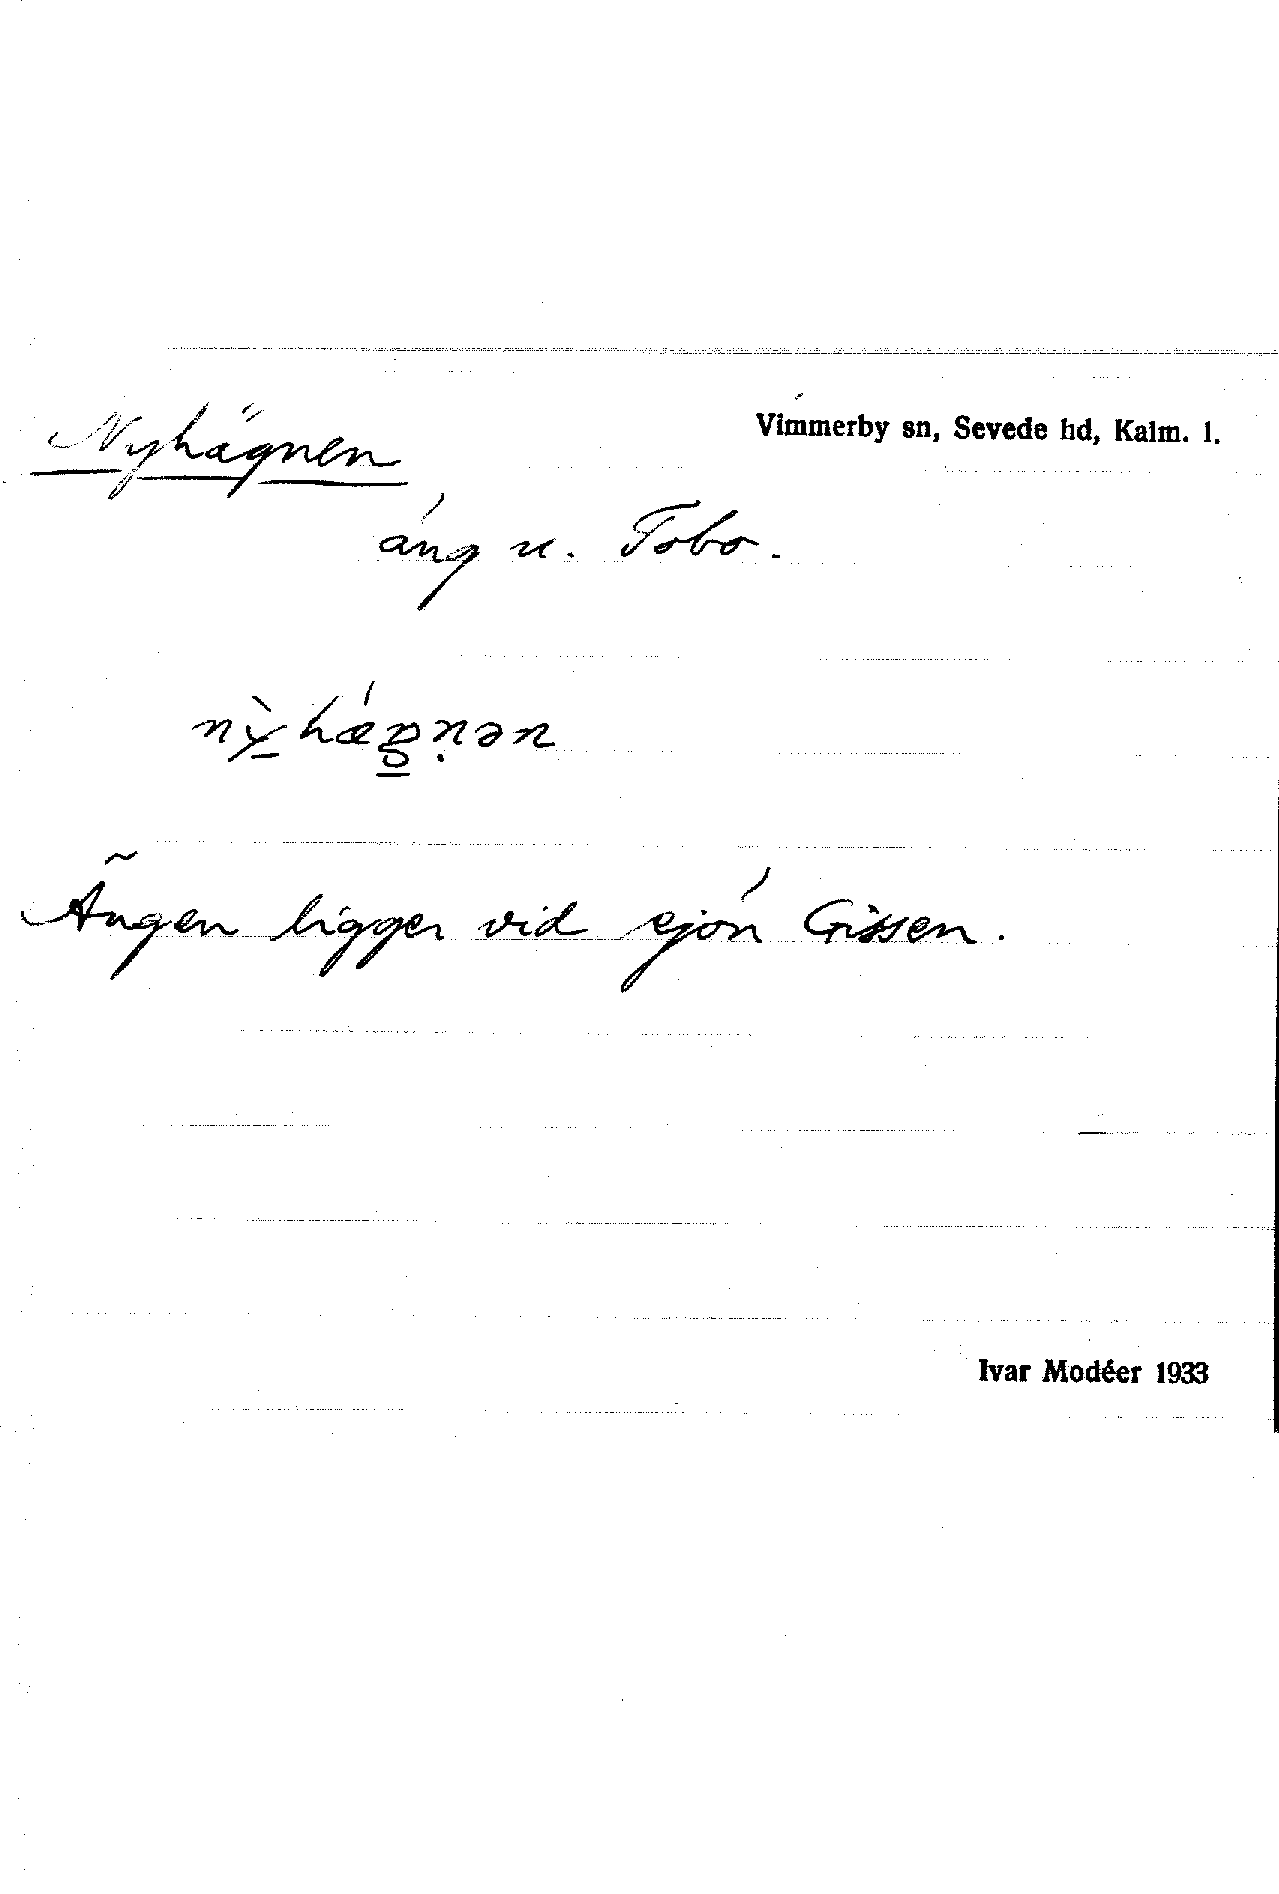 Nyhägnen
Vimmerby sn, Sevede hd, Kalm. l.
äng u. Tobo.
Ängen ligger vid sjön Gissen.
Ivar Modéer 1933